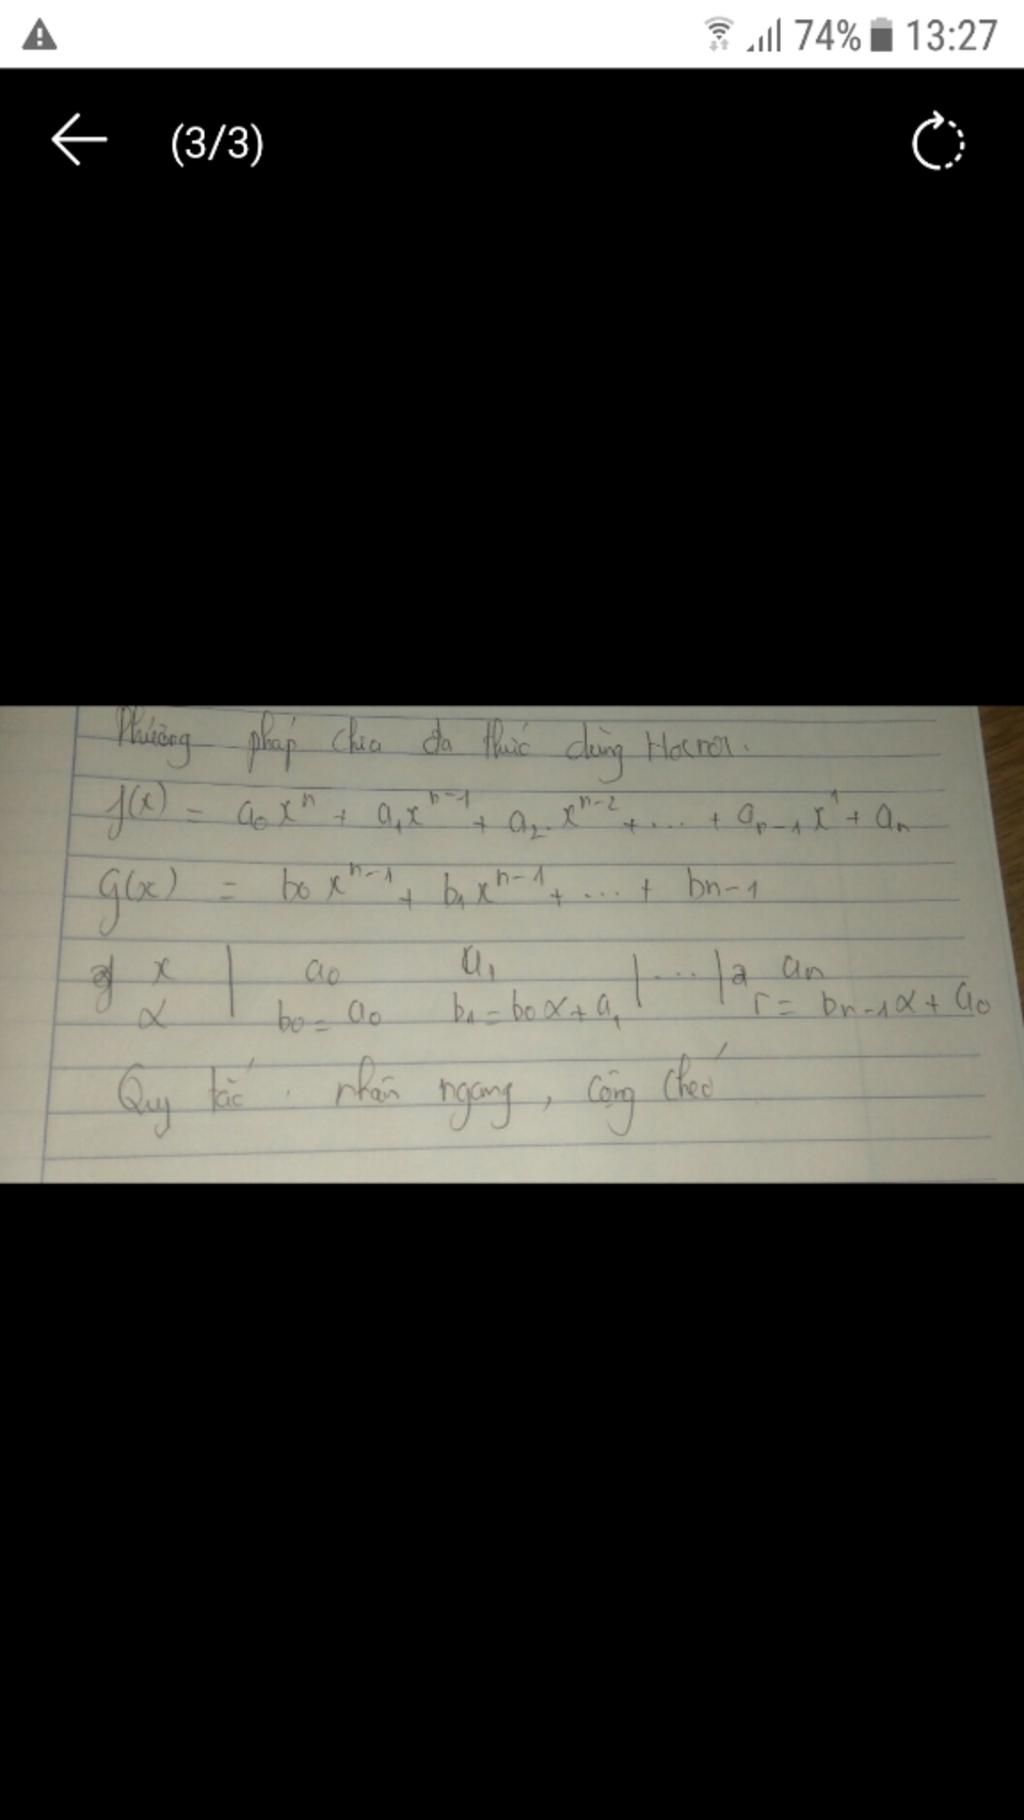 74% 13:27
(3/3)
Phương pháp chia đa thức dùng Hocnơ.
f(x) = a₀xⁿ + a₁xⁿ⁻¹ + a₂.xⁿ⁻² + ... + aₙ₋₁x¹ + aₙ
G(x) = b₀xⁿ⁻¹ + b₁xⁿ⁻¹ + ... + bn-1
x | a₀ a₁ | ... | aₙ
α b₀ = a₀ b₁ = b₀α + a₁ r = bₙ₋₁α + a₀
Quy tắc: nhân ngang, cộng chéo